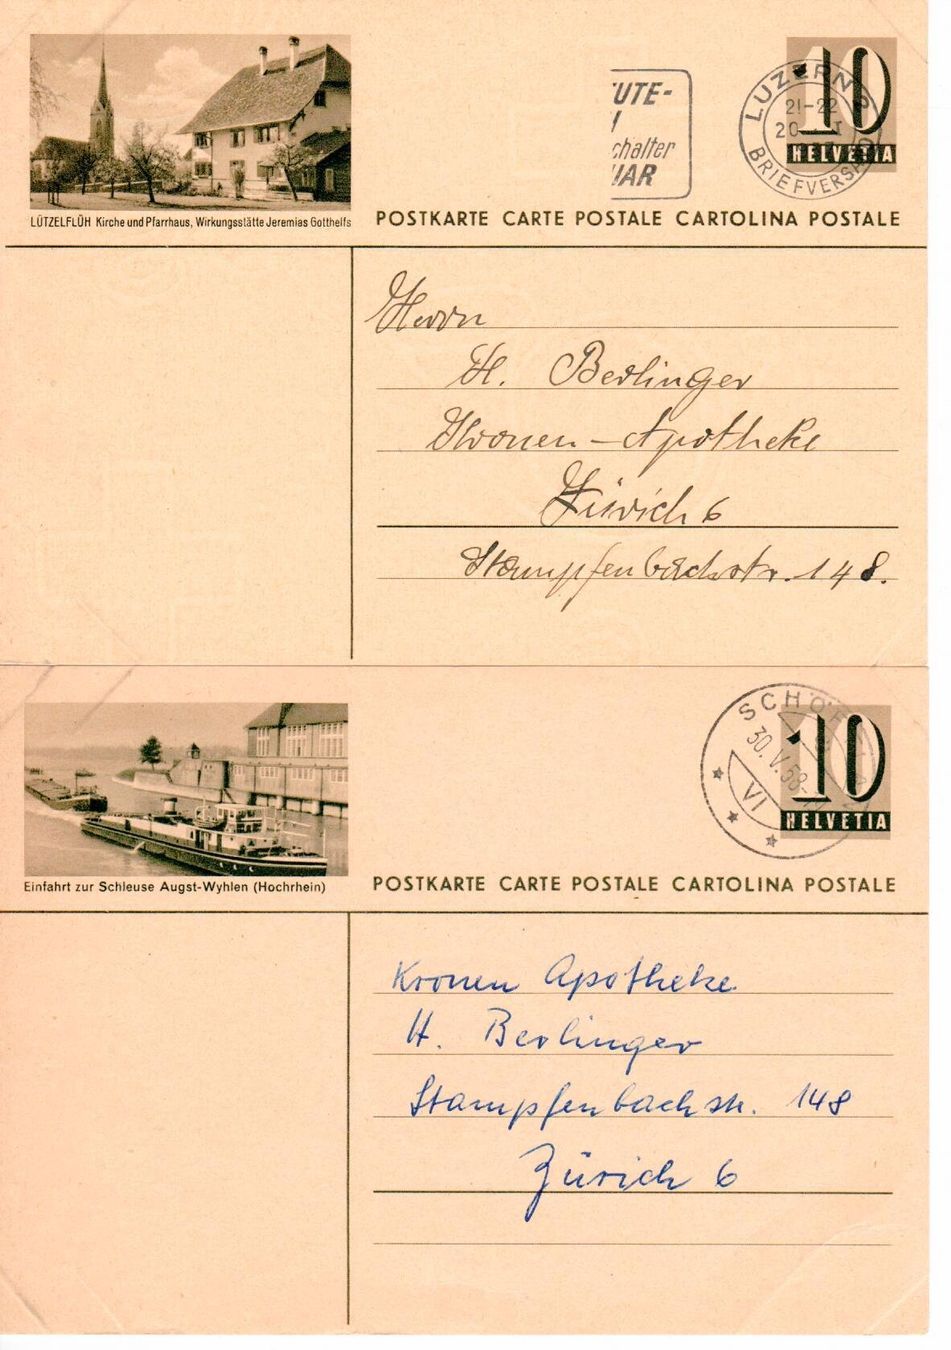 UTE-
chalter
UAR
LUZERN 2
21-22
20
BRIEFVERSAND
10
HELVETIA
LÜTZELFLÜH Kirche und Pfarrhaus, Wirkungsstätte Jeremias Gotthelfs
POSTKARTE CARTE POSTALE CARTOLINA POSTALE
Herrn
H. Berlinger
Kronen-Apotheke
Zürich 6
Stampfenbachstr. 148.
30.V.58
VI
10
HELVETIA
Einfahrt zur Schleuse Augst-Wyhlen (Hochrhein)
POSTKARTE CARTE POSTALE CARTOLINA POSTALE
Kronen Apotheke
H. Berlinger
Stampfenbachstr. 148
Zürich 6